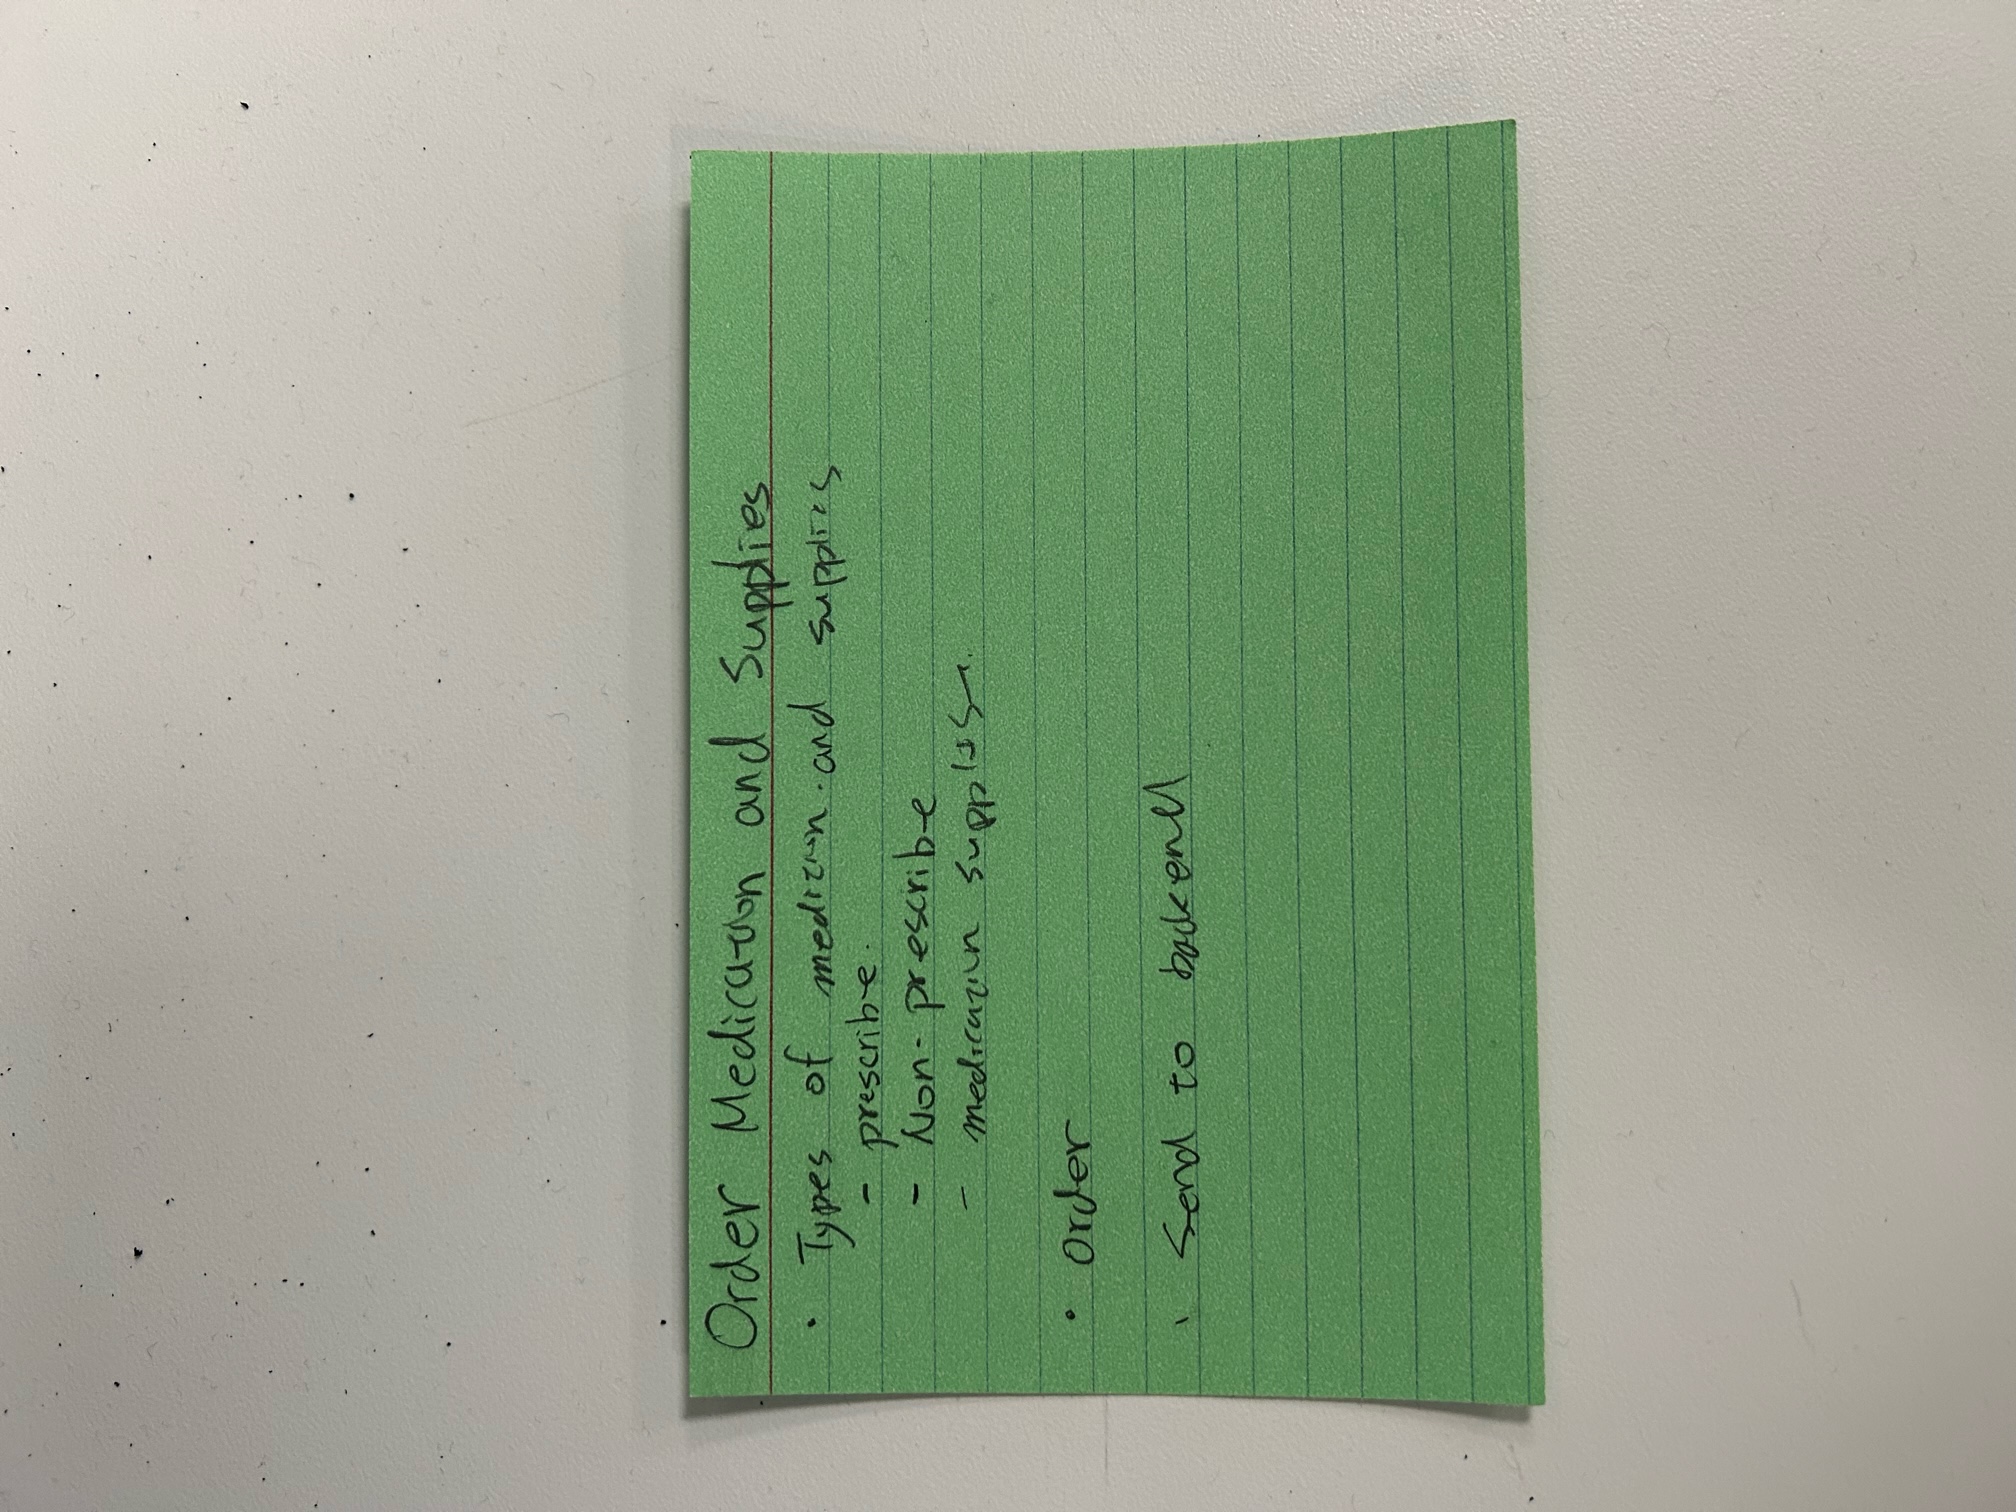 Order Medication and Supplies
• Types of medicin. and supplies
- prescribe.
- Non-prescribe
- medication
• order
• Send to backend